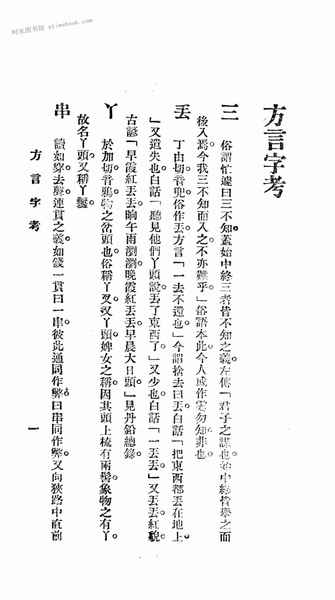 時光圖書館 etimebook.com
方言字考
三 俗謂忙遽曰三不知蓋始中終三者皆不知之義左傳「君子之謀也始中終皆舉之而
後入焉今我三不知而入之不亦難乎」俗語本此今人或作雲勿知非也
丟 丁由切音兜俗作丟方言「一去不還也」今謂捨去曰丟白話「把東西都丟在地上
」又遺失也白話「聽見他們丫頭說丟了東西了」又少也白話「一丟丟」又丟丟紅貌
古諺「早霞紅丟丟晌午雨瀏瀏晚霞紅丟丟早晨大日頭」見丹鉛總錄
丫 於加切音鴉物之岔頭也俗稱丫叉又丫頭婢女之稱因其頭上梳有兩髻象物之有丫
故名丫頭又稱丫鬟
串 讀如穿去聲連貫之義如錢一貫曰一串彼此通同作弊曰串同作弊又向狹路中直前
方言字考
一